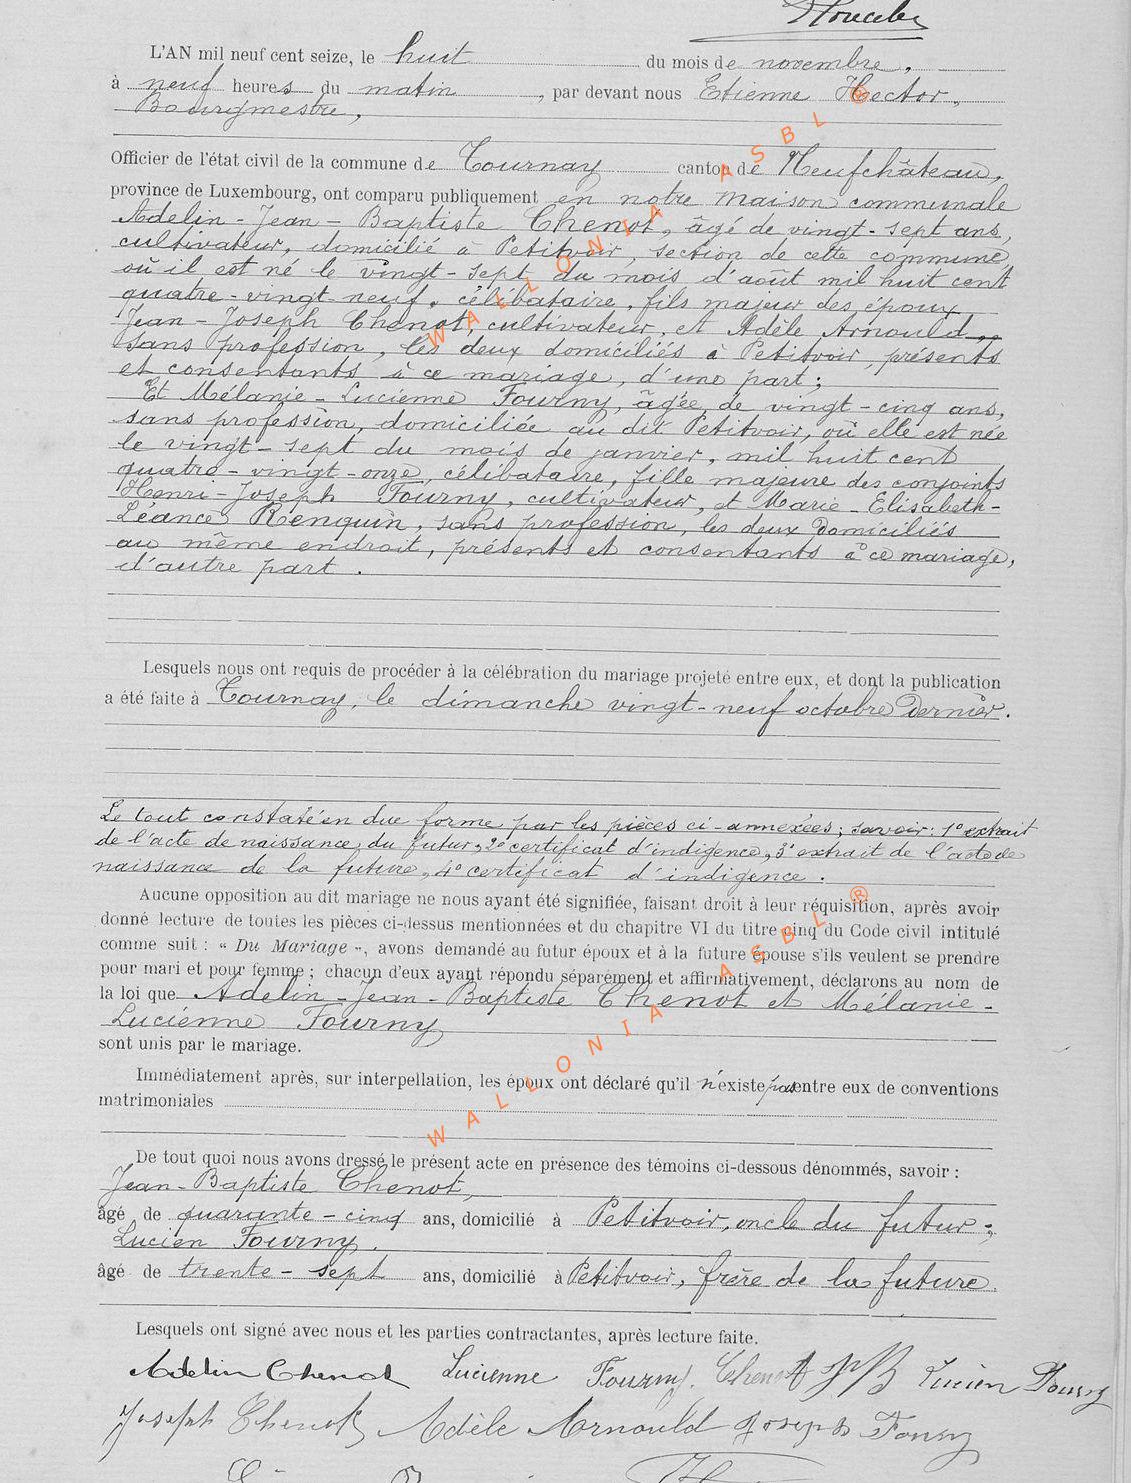 L'AN mil neuf cent seize, le huit du mois de novembre,
à neuf heures du matin, par devant nous Etienne Hector,
Bourgmestre,
Officier de l'état civil de la commune de Tournay canton de Neufchâteau,
province de Luxembourg, ont comparu publiquement en notre maison communale
Adelin-Jean-Baptiste Chenot, âgé de vingt-sept ans,
cultivateur, domicilié à Petitvoir, section de cette commune,
où il est né le vingt-sept du mois d'août mil huit cent
quatre-vingt-neuf, célibataire, fils majeur des époux
Jean-Joseph Chenot, cultivateur, et Adèle Arnould,
sans profession, les deux domiciliés à Petitvoir, présents
et consentants à ce mariage, d'une part;
Et Mélanie-Lucienne Fourny, âgée de vingt-cinq ans,
sans profession, domiciliée au dit Petitvoir, où elle est née
le vingt-sept du mois de janvier, mil huit cent
quatre-vingt-onze, célibataire, fille majeure des conjoints
Henri-Joseph Fourny, cultivateur, et Marie-Elisabeth-
Léance Renquin, sans profession, les deux domiciliés
au même endroit, présents et consentants à ce mariage,
d'autre part.
Lesquels nous ont requis de procéder à la célébration du mariage projeté entre eux, et dont la publication
a été faite à Tournay, le dimanche vingt-neuf octobre dernier.
Le tout constaté en due forme par les pièces ci-annexées, savoir: 1° extrait
de l'acte de naissance du futur, 2° certificat d'indigence, 3° extrait de l'acte de
naissance de la future, 4° certificat d'indigence.
Aucune opposition au dit mariage ne nous ayant été signifiée, faisant droit à leur réquisition, après avoir
donné lecture de toutes les pièces ci-dessus mentionnées et du chapitre VI du titre cinq du Code civil intitulé
comme suit : « Du Mariage », avons demandé au futur époux et à la future épouse s'ils veulent se prendre
pour mari et pour femme ; chacun d'eux ayant répondu séparément et affirmativement, déclarons au nom de
la loi que Adelin-Jean-Baptiste Chenot et Mélanie-
Lucienne Fourny
sont unis par le mariage.
Immédiatement après, sur interpellation, les époux ont déclaré qu'il n'existe pas entre eux de conventions
matrimoniales
De tout quoi nous avons dressé le présent acte en présence des témoins ci-dessous dénommés, savoir :
Jean-Baptiste Chenot,
âgé de quarante-cinq ans, domicilié à Petitvoir, oncle du futur;
Lucien Fourny,
âgé de trente-sept ans, domicilié à Petitvoir, frère de la future.
Lesquels ont signé avec nous et les parties contractantes, après lecture faite.
Adelin Chenot Lucienne Fourny. Chenot JB Lucien Fourny
Joseph Chenot Adèle Arnould Joseph Fourny
WALLONIA ASBL ®
WALLONIA ASBL ®